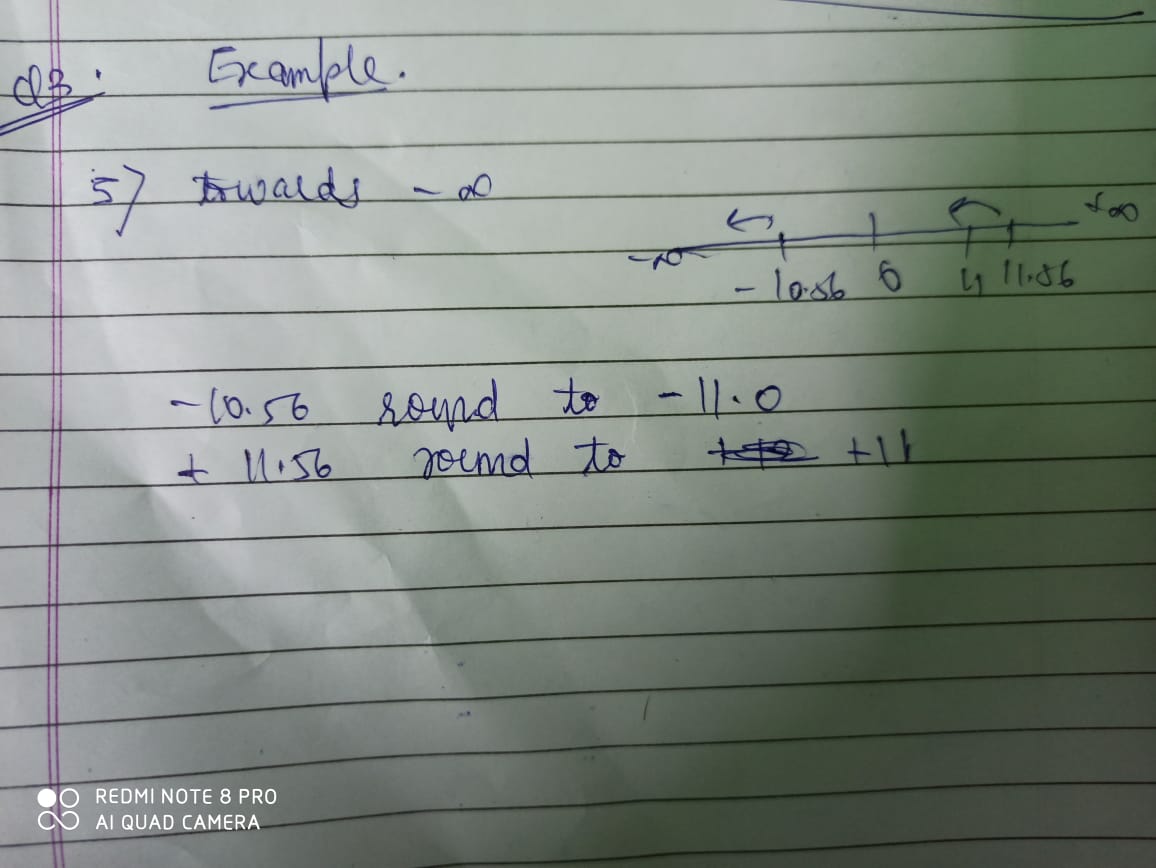 Q3: Example.
5) towards - ∞
+∞
-∞
- 10.56 0 11 11.56
-10.56 round to -11.0
+ 11.56 round to +11
REDMI NOTE 8 PRO
AI QUAD CAMERA